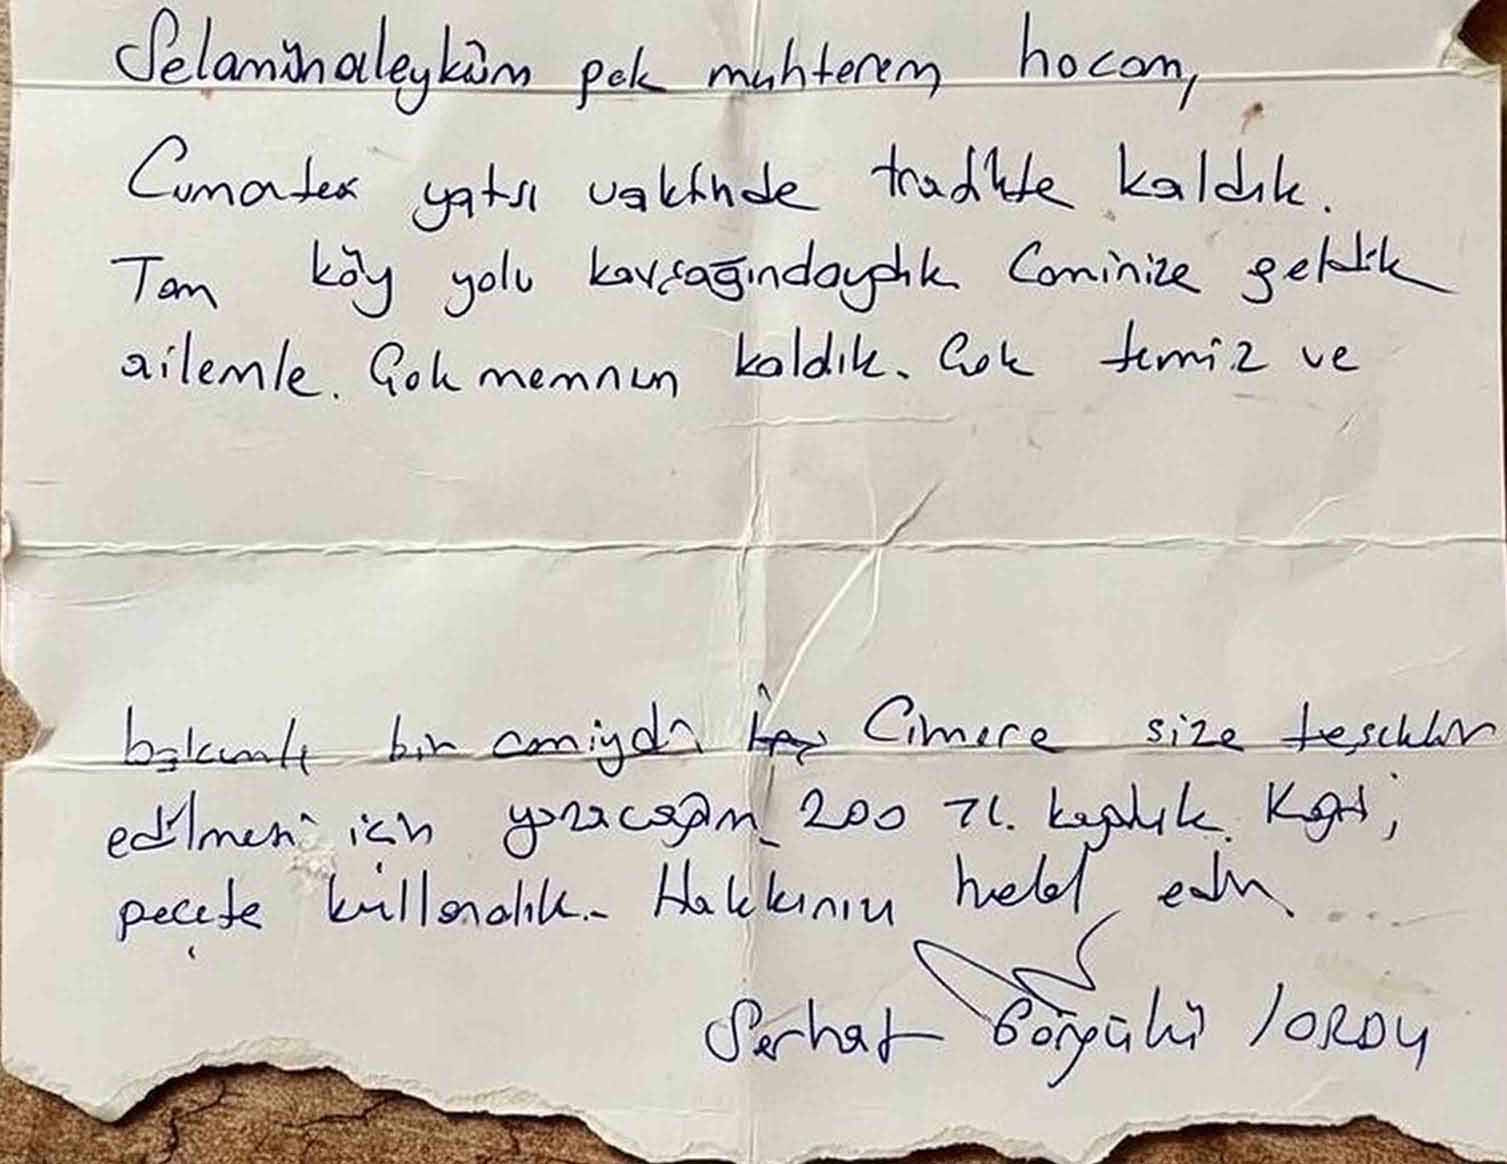 Selamünaleyküm pek muhterem hocam,
Cumartesi yatsı vaktinde trafikte kaldık.
Tam köy yolu kavşağındaydık Caminize geldik
ailemle. Çok memnun kaldık. Çok temiz ve
bakımlı bir camiydi Cimere size teşekkür
edilmesi için yazacağım 200 TL. koyduk. Kağıt,
peçete kullandık. Hakkınızı helal edin
Serhat Görgülü / ORDU